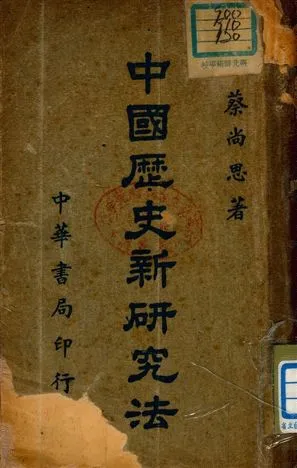 蔡尚思著
中國歷史新研究法
中華書局印行
700